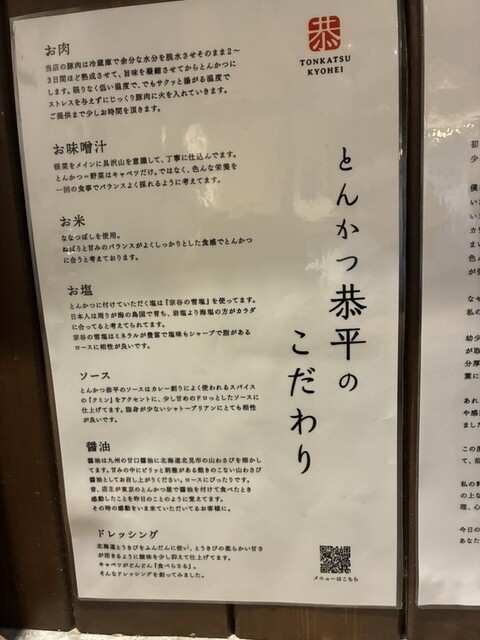 恭
TONKATSU
KYOHEI
とんかつ恭平の
こだわり
お肉
当店の豚肉は冷蔵庫で余分な水分を脱水させそのまま2〜
3日間ほど熟成させて、旨味を凝縮させてからとんかつに
します。限りなく低い温度で、でもサクッと揚がる温度で
ストレスを与えずにじっくり豚肉に火を入れていきます。
ご提供まで少しお時間を頂きます。
お味噌汁
根菜をメインに具沢山を意識して、丁寧に仕込んでます。
とんかつ=野菜はキャベツだけ。ではなく、色んな栄養を
一回の食事でバランスよく採れるように考えてます。
お米
ななつぼしを使用。
ねばりと甘みのバランスがよくしっかりとした食感でとんかつ
に合うと考えております。
お塩
とんかつに付けていただく塩は『宗谷の雪塩』を使ってます。
日本人は周りが海の島国で育ち、岩塩より海塩の方がカラダ
に合ってると考えてられてます。
宗谷の雪塩はミネラルが豊富で塩味もシャープで脂がある
ロースに相性が良いです。
ソース
とんかつ恭平のソースはカレー創りによく使われるスパイス
の『クミン』をアクセントに、少し甘めのドロっとしたソースに
仕上げてます。脂身が少ないシャトーブリアンにとても相性
が良いです。
醤油
醤油は九州の甘口醤油に北海道北見市の山わさびを溶かし
てます。甘みの中にピリッと刺激がある飽きのこない山わさび
醤油としてお召し上がりください。ロースにぴったりです。
昔、店主が東京のとんかつ屋で醤油を付けて食べたとき
感動したことを昨日のことのように覚えてます。
その時の感動をいま来ていただいてるお客様に。
ドレッシング
北海道とうきびをふんだんに使い、とうきびの柔らかい甘さ
が活きるように酸味を少し抑えて仕上げてます。
キャベツがどんどん『食べらさる』。
そんなドレッシングを創ってみました。
メニューはこちら